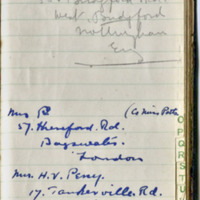 West Bridgford
Nottingham
Eng
Mrs P (Co Miss Potts)
57. Hereford. Rd.
Bayswater.
London
Mrs. H. V. Percy.
17. Tankerville. Rd.
O P Q R S T U